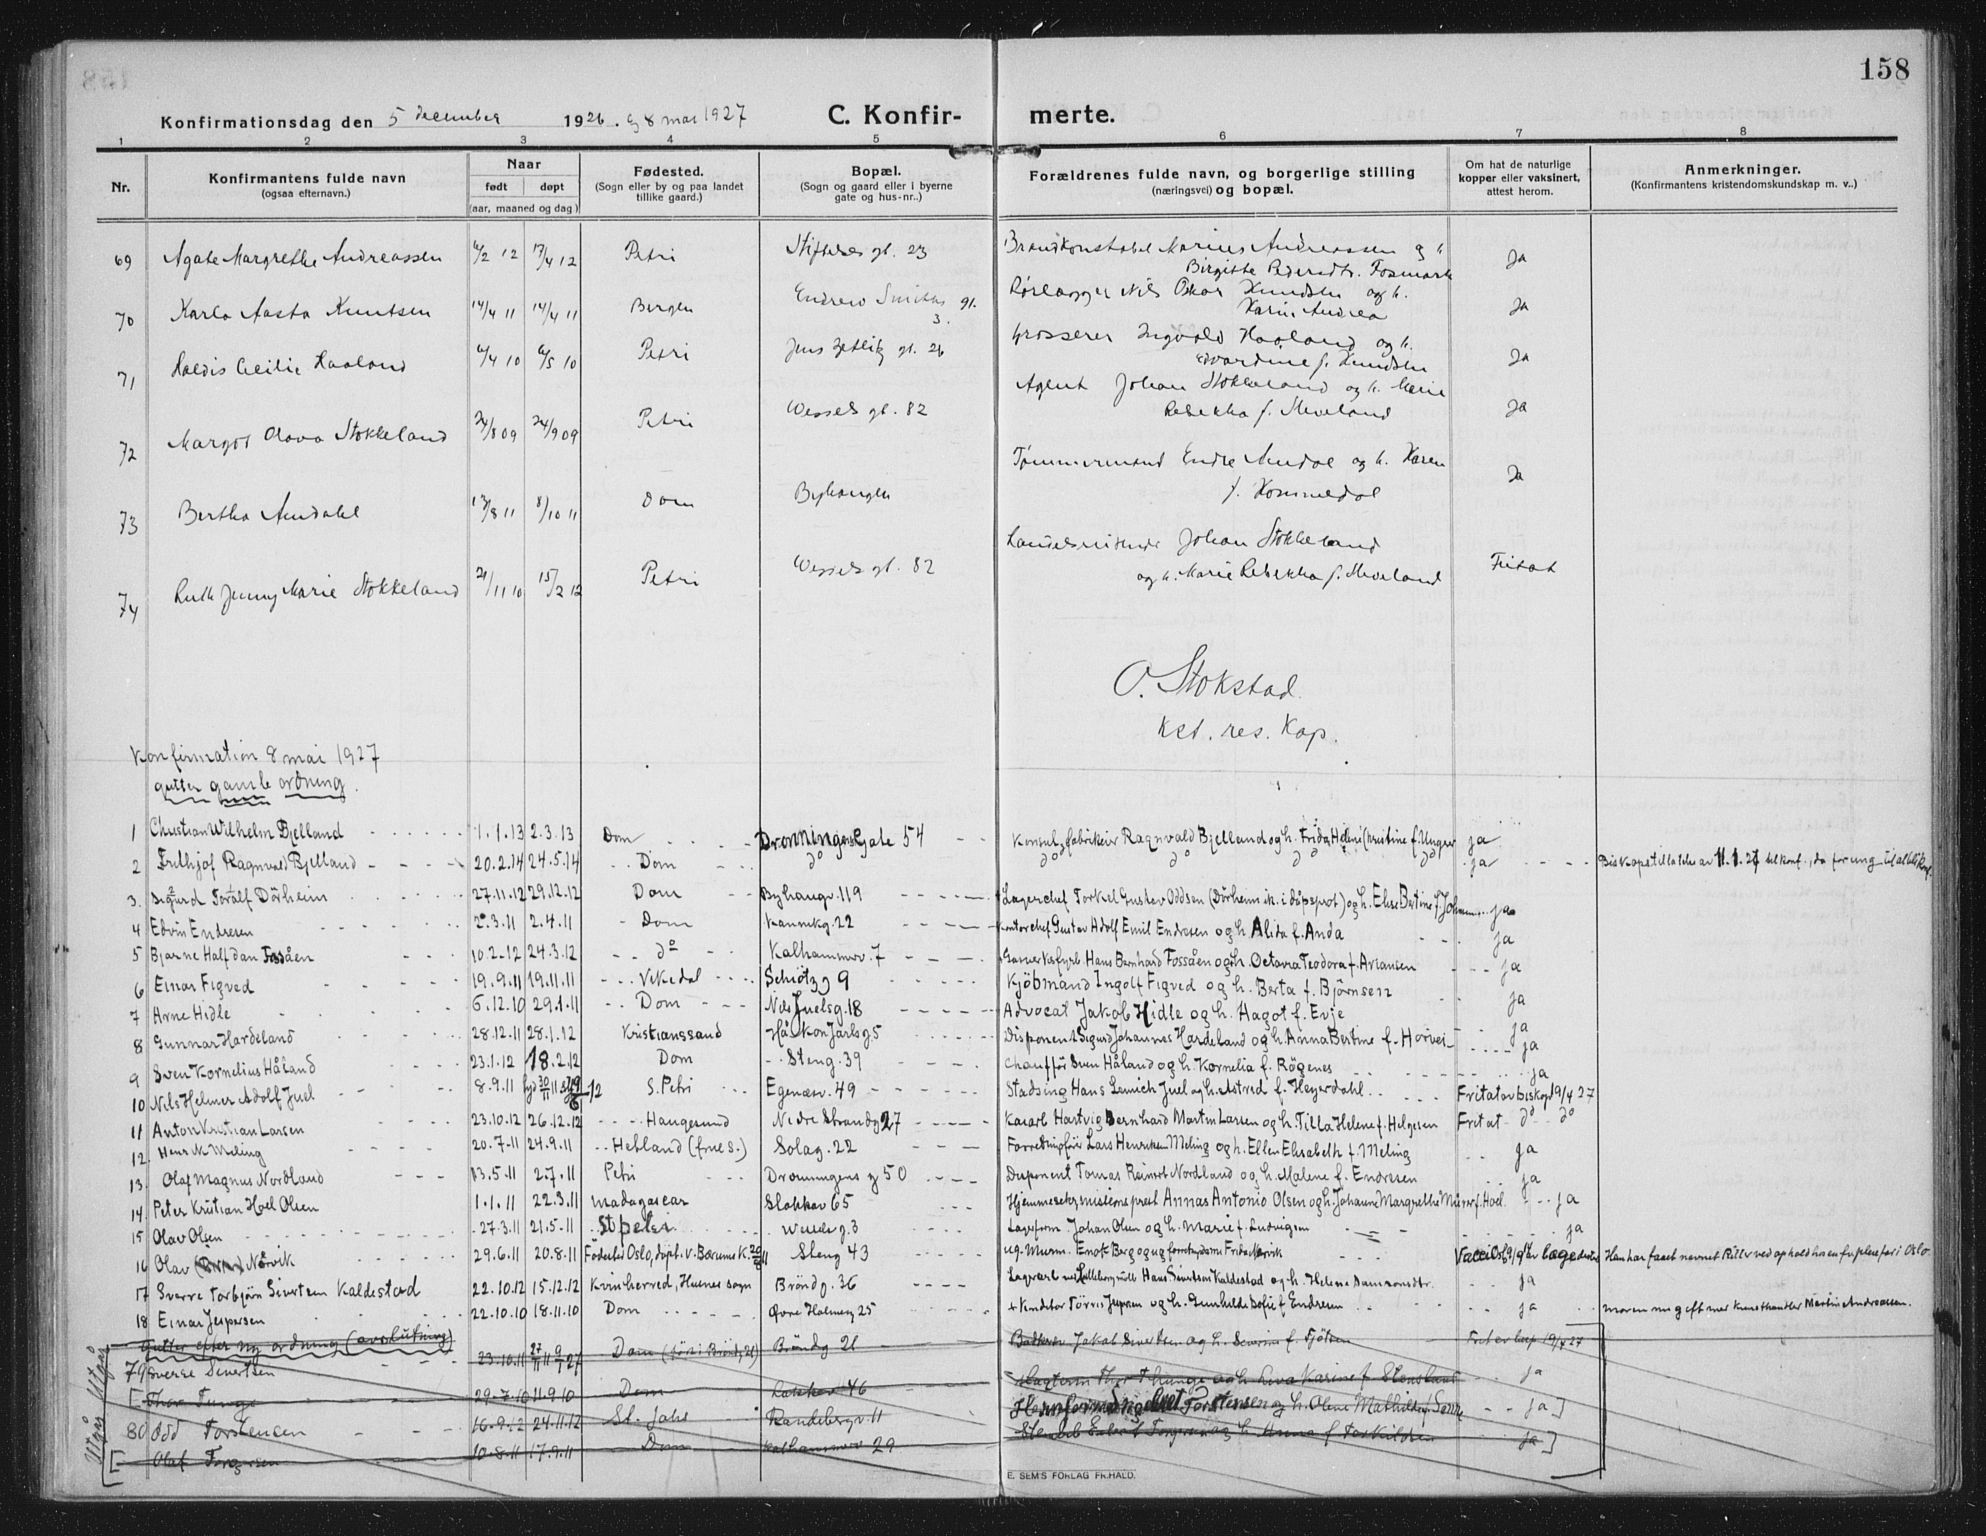 158
Konfirmationsdag den 5 december 1926. og 8 mai 1927 C. Konfirmerte.
1 2 3 4 5 6 7 8
Nr.
Konfirmantens fulde navn
(ogsaa efternavn.)
Naar
født døpt
(aar, maaned og dag)
Fødested.
(Sogn eller by og paa landet
tillike gaard.)
Bopæl.
(Sogn og gaard eller i byerne
gate og hus-nr..)
Forældrenes fulde navn, og borgerlige stilling
(næringsvei) og bopæl.
Om hat de naturlige
kopper eller vaksinert,
attest herom.
Anmerkninger.
(Konfirmantens kristendomskundskap m. v..)
69 Agate Margrethe Andreassen 6/2 12 17/4 12 Petri gt. 23 Brandkonstabel Marius Andreassen og h. Ja
Birgitte Pedersdtr. Fosmark
70 Karla Aasta Knutsen 14/4 11 14/4 11 Bergen Endrew Smiths gt. 3. Nils Oskar Knudsen og h. Ja
Karin Andrea
71 Haldis Cecilie Haaland 6/4 10 6/5 10 Petri Jens Zetlitz gt. 26 Grosserer Ingvald Haaland og h. Ja
Edvardine f. Knudsen
72 Margot Olava Stokkeland 24/8 09 24/9 09 Petri Wessels gt. 82 Agent Johan Stokkeland og h. Marie Ja
Rebekka f. Meveland
73 Bertha Aendahl 13/8 11 8/10 11 Dom Byhaugen Tømmermand Endre Aendal og h. Karen Ja
f. Kommedal
74 Ruth Jenny Marie Stokkeland 21/11 10 15/2 12 Petri Wessels gt. 82 Johan Stokkeland Fritat
og h. Marie Rebekka f. Meveland
O. Stokstad
Kst. res. Kap.
Konfirmation 8 mai 1927
gutter gamle ordning.
1 Christian Wilhelm Bjelland 1.1.13 2.3.13 Dom Dronningens Gate 54 Konsul, fabrikeier Ragnvald Bjelland og h. Frida Helene Christine f. Unger ja
2 Frithjof Ragnvald Bjelland 20.2.14 24.5.14 Dom do do do do do ja Biskops tillatelse av 11.1.27 til konf., da for ung
3. Sigurd Toralf Dörheim 27.11.12 29.12.12 Dom Byhaugv. 119 Lagerchef Torkel Gustav Oddsen (Dörheim ik. i dåpsprot) og h. Else Bertine f. ja
4 Edvin Endresen 2.3.11 2.4.11 Dom Kannikg. 22 Kontorchef Gustav Adolf Emil Endresen og h. Alida f. Anda ja
5 Bjarne Halfdan Fossåen 10.2.12 24.3.12 do Kalhammerv. 7 Hans Bernhard Fossåen og h. Octavia Teodora f. Ariansen ja
6 Einar Figved 19.9.11 19.11.11 Vikedal Schiötz g 9 Kjöbmand Ingolf Figved og h. Berta f. Björnsen
7 Arne Hidle 6.12.10 29.1.11 Dom Nils Juelsg. 18 Advocat Jakob Hidle og h. Hagot f. Evje ja
8 Gunnar Hardeland 28.12.11 28.1.12 Kristianssand Håkon Jarlsg 5 Disponent Sigurd Johannes Hardeland og h. Anna Bertine f. Horvei ja
9 Sven Kornelius Håland 23.1.12 18.2.12 Dom Steng. 39 Chauffør Sven Håland og h. Kornelia f. Rögenes ja
10 Nils Helmer Adolf Juel 8.9.11 S. Petri Egenæsv. 49 Stadsing Hans Lemich Juel og h. Astrid f. Heyerdahl ja
Fritat av biskop 19/4 27
11 Anton Kristian Larsen 23.10.12 26.12.12 Haugesund Nedre Strandg 27 Hartvig Bernhard Martin Larsen og h. Tilla Helene f. Helgesen Fritat do do
12. Hans N Meling 20.7.11 24.9.11 Hetland (frue s.) Solag. 22 Lars Henriksen Meling og h. Ellen Elisabeth f. Meling ja
13. Olaf Magnus Nordland 13.5.11 2.7.11 Petri Dronningens g 50 Disponent Tomas Reinert Nordland og h. Malene f. Endresen ja
14. Peter Kristian Hoel Olsen 1.1.11 22.3.11 Madagascar Slokkev 65 Annas Antonio Olsen og h. Johanne Margrethe f. Hoel ja
15 Olav Olsen 27.3.11 21.5.11 St petri g. 3 Johan Olsen og h. Marie f. Ludvigsen ja
16 Olav Nårvik 29.6.11 20.8.11 Födt i Oslo, döpt. v. Bærums K. Steng 43 ug. Murm. Enok Berg og Frida Nårvik Han har faaet navnet i Oslo
17 Sverre Torbjörn Sivertsen Kaldestad 22.10.12 15.12.12 Kvinherred, Husnes sogn Bröndg. 36 Hans Sivertsen Kaldestad og h. Helene Samsonsdtr. ja
18 Einar Jespersen 22.10.10 18.11.10 Dom Øvre Holmeg 25 + Konditor Jespersen og h. Gunhilde Sofie f. Endresen ja moren nu gift med kunsthandler Martin Andreassen.
Gutter efter ny ordning (avslutning)
79 Sverre Sivertsen 23.10.11 Dom Bröndg 21 Jakob Sivertsen og h. Severine f. Fjötsen 19/4 27
[- Thor Tunge 29.7.10 11.9.10 Dom 46 Thor Tunge og h. Karine f. ja
80 Odd Torstensen 16.9.12 24.11.12 St. Johs Randebergv 11 Torstensen og h. Olene Mathilde f. ja]
[- Olaf Torgersen 10.8.11 17.9.11 Dom Kalhammerv 29 og h. Anna f. Torkildsen ja]
Utgår Utgår
E. SEM'S FORLAG FR.HALD.